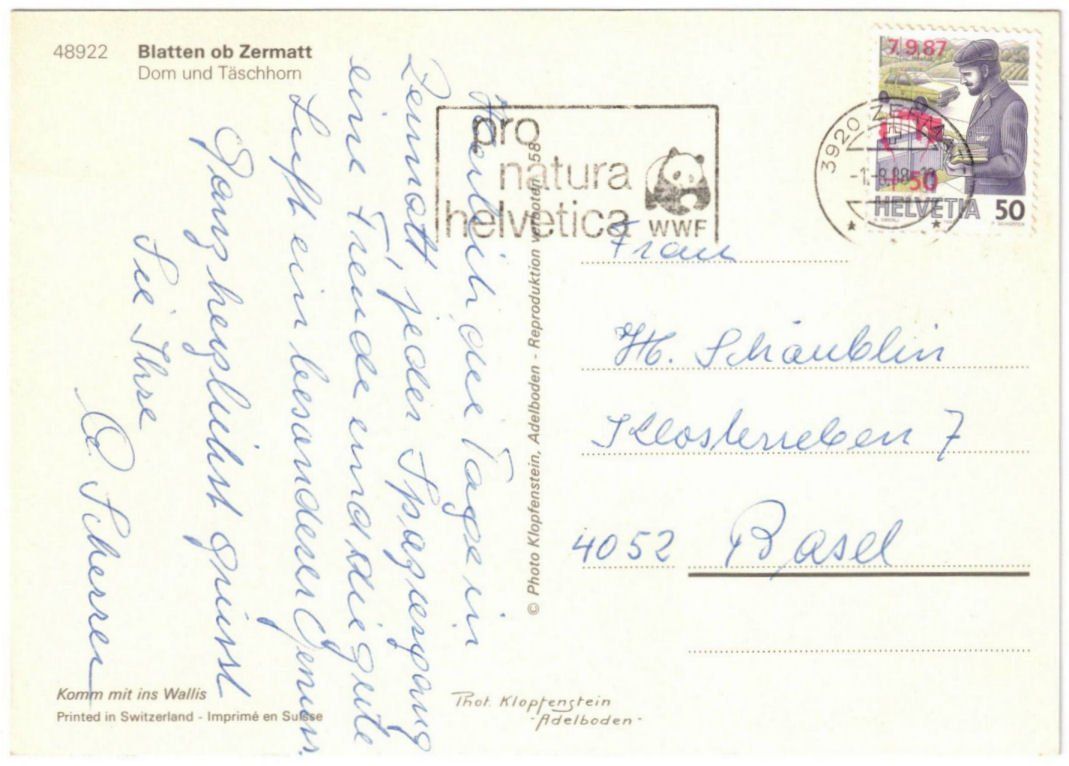 48922 Blatten ob Zermatt
Dom und Täschhorn
Herrlich die Tage in
Zermatt, jeder Spaziergang
eine Freude und die gute
Luft ein besonderer Genuss.
Ganz herzlichst grüsst
Sie Ihre
Scherrer
pro
natura
helvetica
WWF
7.9.87
3920
HELVETIA 50
© Photo Klopfenstein, Adelboden - Reproduktion verboten
Frau
H. Schäublin
Klosterreben 7
4052 Basel
Komm mit ins Wallis
Printed in Switzerland - Imprimé en Suisse
Phot. Klopfenstein
- Adelboden -